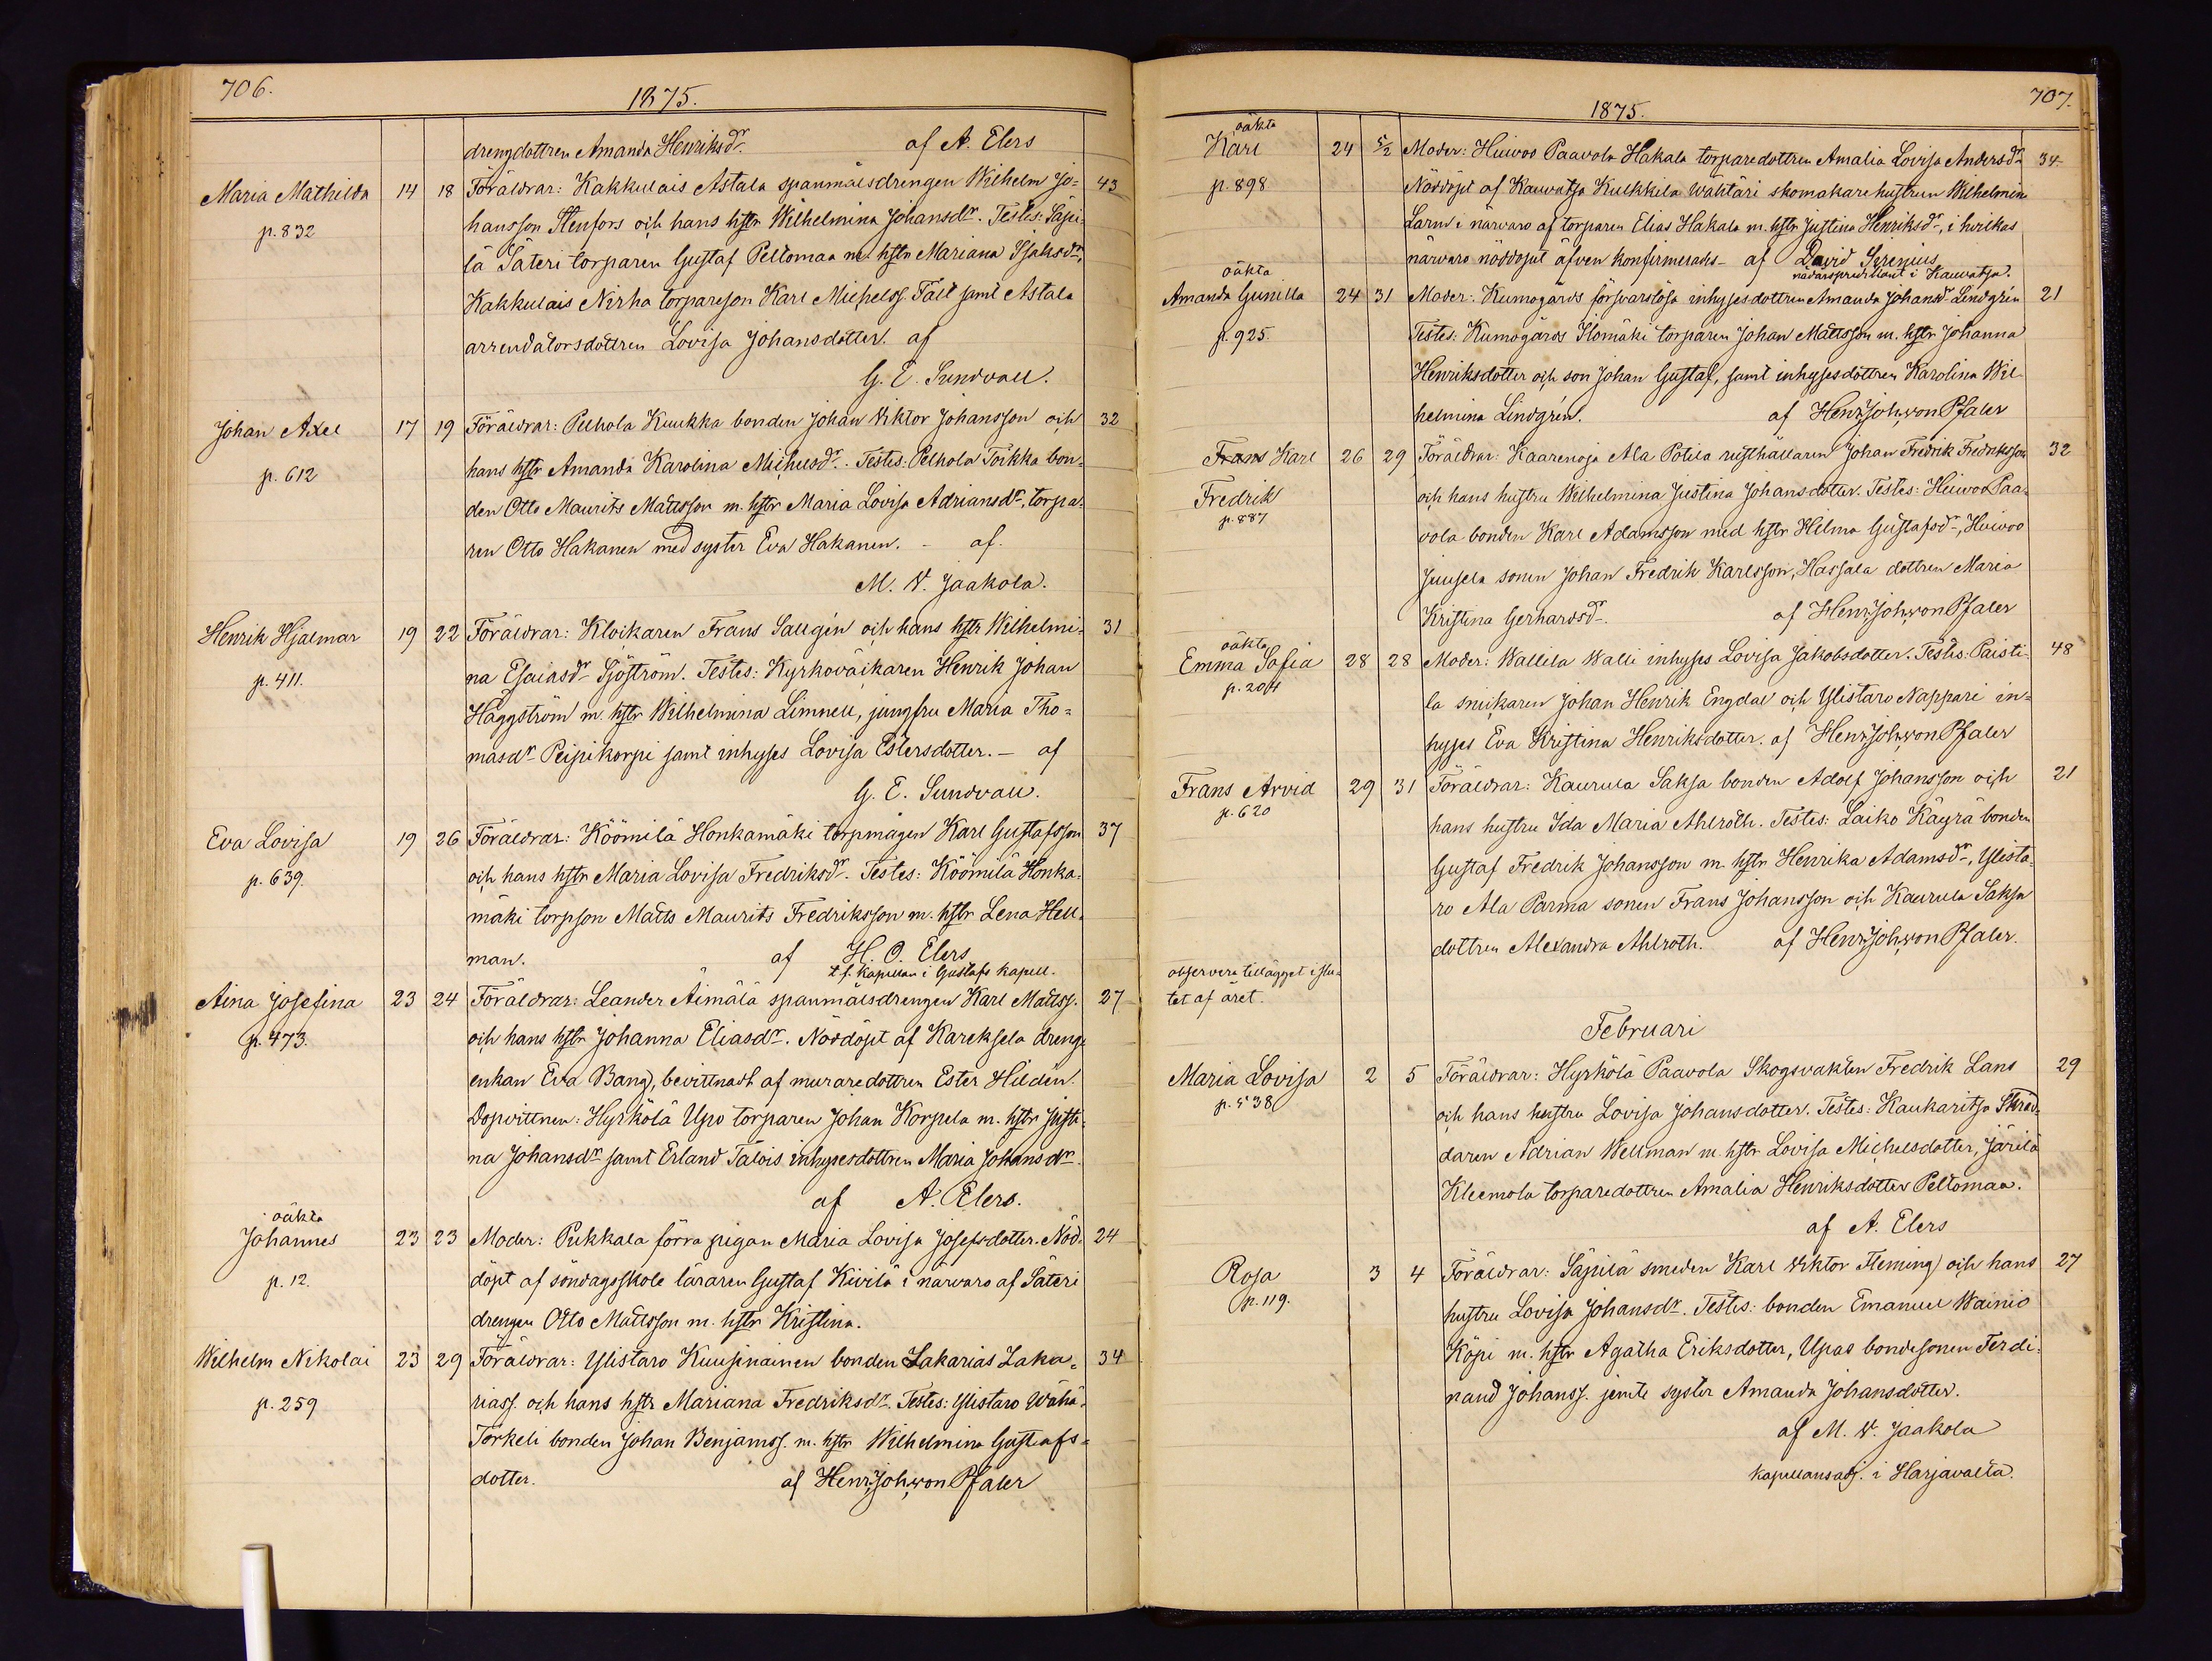 706.
1875.
drengdottren Amanda Henriksdr. af A. Elers
Maria Mathilda 14 18 Föräldrar: Kakkulais Astala spanmålsdrengen Wilhelm Jo= 43
p. 832 hansson Stenfors och hans hstr Wilhelmina Johansdr. Testes: Säpi-
lä Säteri torparen Gustaf Peltomaa m. hstr Mariana Isaksdr,
Kakkulais Nirha torpareson Karl Michelss. Fält samt Astala
arrendatorsdottren Lovisa Johansdotter. af
G. E. Sundvall.
Johan Axel 17 19 Föräldrar: Pelhola Kuukka bonden Johan Viktor Johansson och 32
p. 612 hans hstr Amanda Karolina Michelsdr. Testes: Pelhola Toikka bon=
den Otto Maurits Mattsson m. hstr Maria Lovisa Adriansdr, torpa=
ren Otto Hakanen med syster Eva Hakanen. - af
M. V. Jaakola.
Henrik Hjalmar 19 22 Föräldrar: Klockaren Frans Sallgén och hans hstr Wilhelmi= 31
p. 411. na Esaiasdr Sjöström. Testes: Kyrkoväktaren Henrik Johan
Häggström m. hstr Wilhelmina Limnell, jungfru Maria Tho=
masdr Peipikorpi samt inhyses Lovisa Estersdotter. - af
G. E. Sundvall.
Eva Lovisa 19 26 Föräldrar: Köömilä Honkamäki torpmågen Karl Gustafsson 37
p. 639. och hans hstr Maria Lovisa Fredriksdr. Testes: Köömilä Honka=
mäki torpson Matts Maurits Fredriksson m. hstr Lena Hell=
man. af H. O. Elers
t.f. kapellan i Gustafs kapell.
Aina Josefina 23 24 Föräldrar: Leander Äimälä spanmålsdrengen Karl Mattss. 27
p. 473. och hans hstr Johanna Eliasdr. Nöddöpt af Kareksela dreng=
enkan Eva Bang, bevittnadt af muraredottren Ester Hildén.
Dopvittnen: Hyrkölä Upo torparen Johan Korpela m. hstr Justi=
na Johansdr samt Erland Talois inhysesdottren Maria Johansdr.
af A. Elers.
oäkta
Johannes 23 23 Moder: Pukkala förra pigan Maria Lovisa Josefsdotter. Nöd= 24
p. 12. döpt af söndagsskole läraren Gustaf Kivilä i närvaro af Säteri
drengen Otto Mattsson m. hstr Kristina.
Wilhelm Nikolai 23 29 Föräldrar: Ylistaro Kuusinainen bonden Zakarias Zaka= 34
p. 259 riass. och hans hstr Mariana Fredriksdr. Testes: Ylistaro Wähä-
Torkeli bonden Johan Benjamss. m. hstr Wilhelmina Gustafs=
dotter. af Henr. Joh. von Pfaler
707.
1875.
oäkta
Karl 24 5/2 Moder: Huivoo Paavola Hakala torparedottren Amalia Lovisa Andersdr 34
p. 898 Nöddöpt af Kauvatsa Kulkkila Wahtäri skomakarehustrun Wilhelmina
Larm i närvaro af torparen Elias Hakala m. hstr Justina Henriksdr, i hvilkas
närvaro nöddopet äfven konfirmerades - af David Sirenius
nådårspredikant i Kauvatsa.
oäkta
Amanda Gunilla 24 31 Moder: Kumogårds försvarslösa inhysesdottren Amanda Johansdr Lindgrén 21
p. 925. Testes: Kumogårds Ilomäki torparen Johan Mattsson m. hstr Johanna
Henriksdotter och son Johan Gustaf, samt inhysesdottren Karolina Wil-
helmina Lindgrén. af Henr. Joh. von Pfaler
Frans Karl 26 29 Föräldrar: Kaarenoja Ala Potila rusthållaren Johan Fredrik Fredriksson 32
Fredrik och hans hustru Wilhelmina Justina Johansdotter. Testes: Huivoo Paa=
p. 887 vola bonden Karl Adamsson med hstr Hilma Gustafsdr, Huivoo
Juusela sonen Johan Fredrik Karlsson, Hassala dottren Maria
Kristina Gerhardsdr. af Henr. Joh. von Pfaler
oäkta
Emma Sofia 28 28 Moder: Wallila Walli inhyses Lovisa Jakobsdotter. Testes: Paisti- 48
p. 204 la snickaren Johan Henrik Engdal och Ylistaro Nappari in=
hyses Eva Kristina Henriksdotter. af Henr. Joh. von Pfaler
Frans Arvid 29 31 Föräldrar: Kaurula Saksa bonden Adolf Johansson och 21
p. 620 hans hustru Ida Maria Ahlroth. Testes: Laiko Käyrä bonden
Gustaf Fredrik Johansson m. hstr Henrika Adamsdr, Ylista=
ro Ala Parma sonen Frans Johansson och Kaurula Saksa
dottren Alexandra Ahlroth. af Henr. Joh. von Pfaler.
observera tillägget i slu=
tet af året.
Februari
Maria Lovisa 2 5 Föräldrar: Hyrkölä Paavola Skogsvakten Fredrik Lans 29
p. 538 och hans hustru Lovisa Johansdotter. Testes: Kaukaritsa Skräd=
daren Adrian Wellman m. hstr Lovisa Michelsdotter, Järilä
Kleemola torparedottren Amalia Henriksdotter Peltomaa.
af A. Elers
Rosa 3 4 Föräldrar: Säpilä smeden Karl Viktor Fleming och hans 27
p. 119. hustru Lovisa Johansdr. Testes: bonden Emanuel Wainio
Köpi m. hstr Agatha Eriksdotter, Upas bondesonen Ferdi=
nand Johanss. jemte syster Amanda Johansdotter.
af M. V. Jaakola
kapellansadj. i Harjavalta.